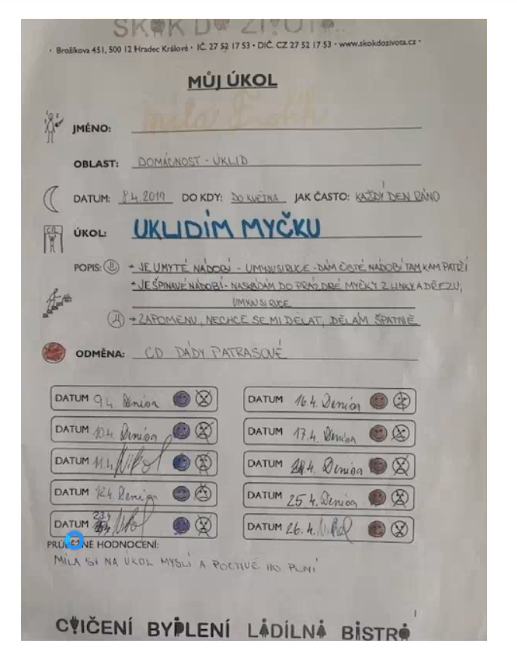 SKOK DO ŽIVOTA
• Brožíkova 451, 500 12 Hradec Králové • IČ. 27 52 17 53 • DIČ. CZ 27 52 17 53 • www.skokdozivota.cz •
MŮJ ÚKOL
JMÉNO: Míla
OBLAST: DOMÁCNOST - ÚKLID
DATUM: 8.4. 2019 DO KDY: DO KVĚTNA JAK ČASTO: KAŽDÝ DEN RÁNO
ÚKOL: UKLIDÍM MYČKU
POPIS: → JE UMYTÉ NÁDOBÍ - UMYJU SI RUCE - DÁM ČISTÉ NÁDOBÍ TAM KAM PATŘÍ
→ JE ŠPINAVÉ NÁDOBÍ - NASKLÁDÁM DO PRÁZDNÉ MYČKY Z LINKY A DŘEZU,
UMYJU SI RUCE
→ ZAPOMENU, NECHCE SE MI DĚLAT, DĚLÁM ŠPATNĚ
ODMĚNA: CD DÁDY PATRASOVÉ
DATUM 9.4. DATUM 16.4.
DATUM 10.4. DATUM 17.4.
DATUM 11.4. DATUM
DATUM 12.4. DATUM 25.4.
DATUM DATUM 26.4.
HODNOCENÍ:
MÍLA SI NA ÚKOL MYSLÍ A POCTIVĚ HO PLNÍ
CVIČENÍ BYDLENÍ LADÍLNA BISTRO